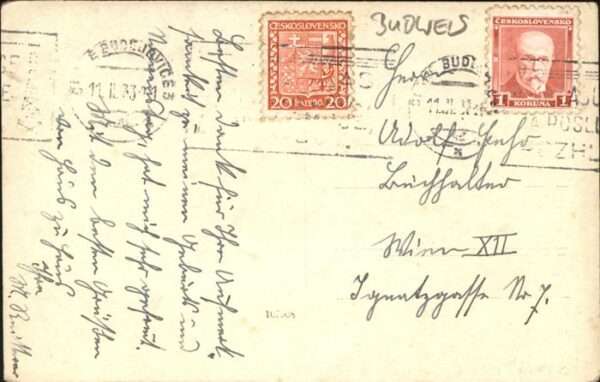 BUDWEIS
ČESKOSLOVENSKO
1
20 HALÉŘŮ 20
ČESKOSLOVENSKO
1 KORUNA 1
BUDĚJOVICE 3
11.II.33
BUD
11.II.
POSL
ZHL
Herrn
Adolf
Buchhalter
Wien XII
Ignatzgasse Nr 7.
Besten Dank für Ihre Aufmerk
samkeit zu meinem Geburts und
Namenstag, hat mich sehr gefreut.
Mit den besten Grüßen
von Haus zu Haus
Ihr